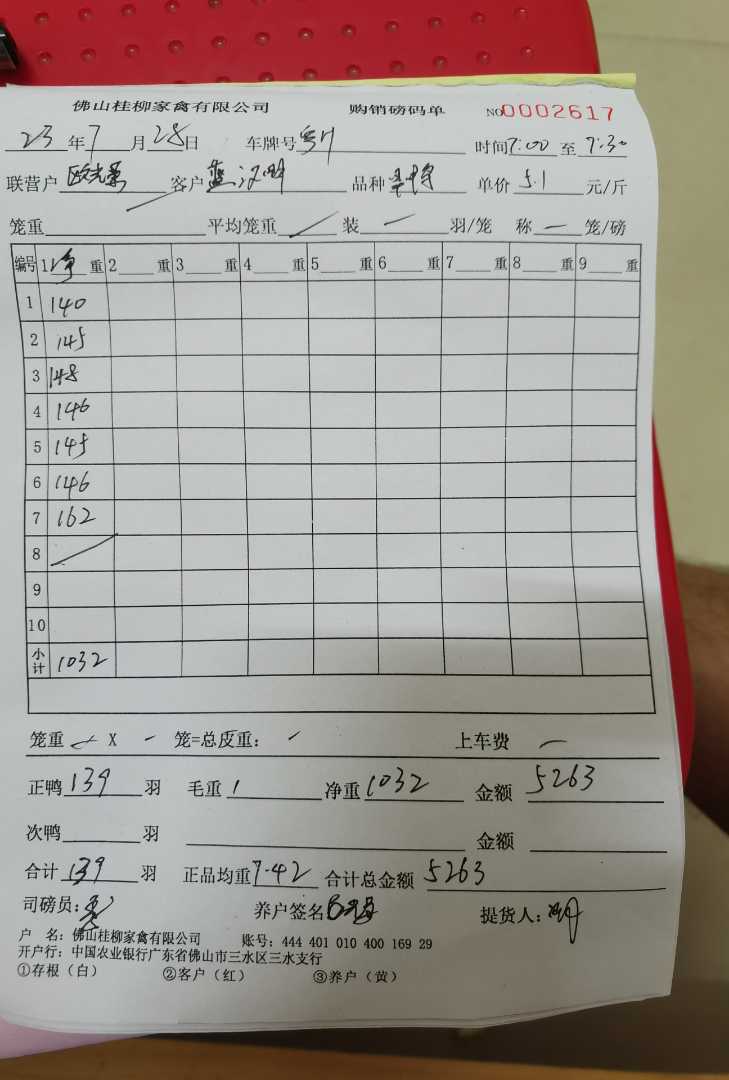 佛山桂柳家禽有限公司 购销磅码单 NO0002617
23年7月28日 车牌号 时间7:00至7:30
联营户 客户 品种 单价5.1元/斤
笼重 平均笼重 装 羽/笼 称 笼/磅
编号 1净重 2重 3重 4重 5重 6重 7重 8重 9重
1 140
2 145
3 148
4 146
5 145
6 146
7 162
8
9
10
小计 1032
笼重 X 笼=总皮重: 上车费
正鸭139羽 毛重 净重1032 金额5263
次鸭 羽 金额
合计139羽 正品均重7.42 合计总金额5263
司磅员: 养户签名 提货人:
户 名:佛山桂柳家禽有限公司 账号:444 401 010 400 169 29
开户行:中国农业银行广东省佛山市三水区三水支行
①存根(白) ②客户(红) ③养户(黄)